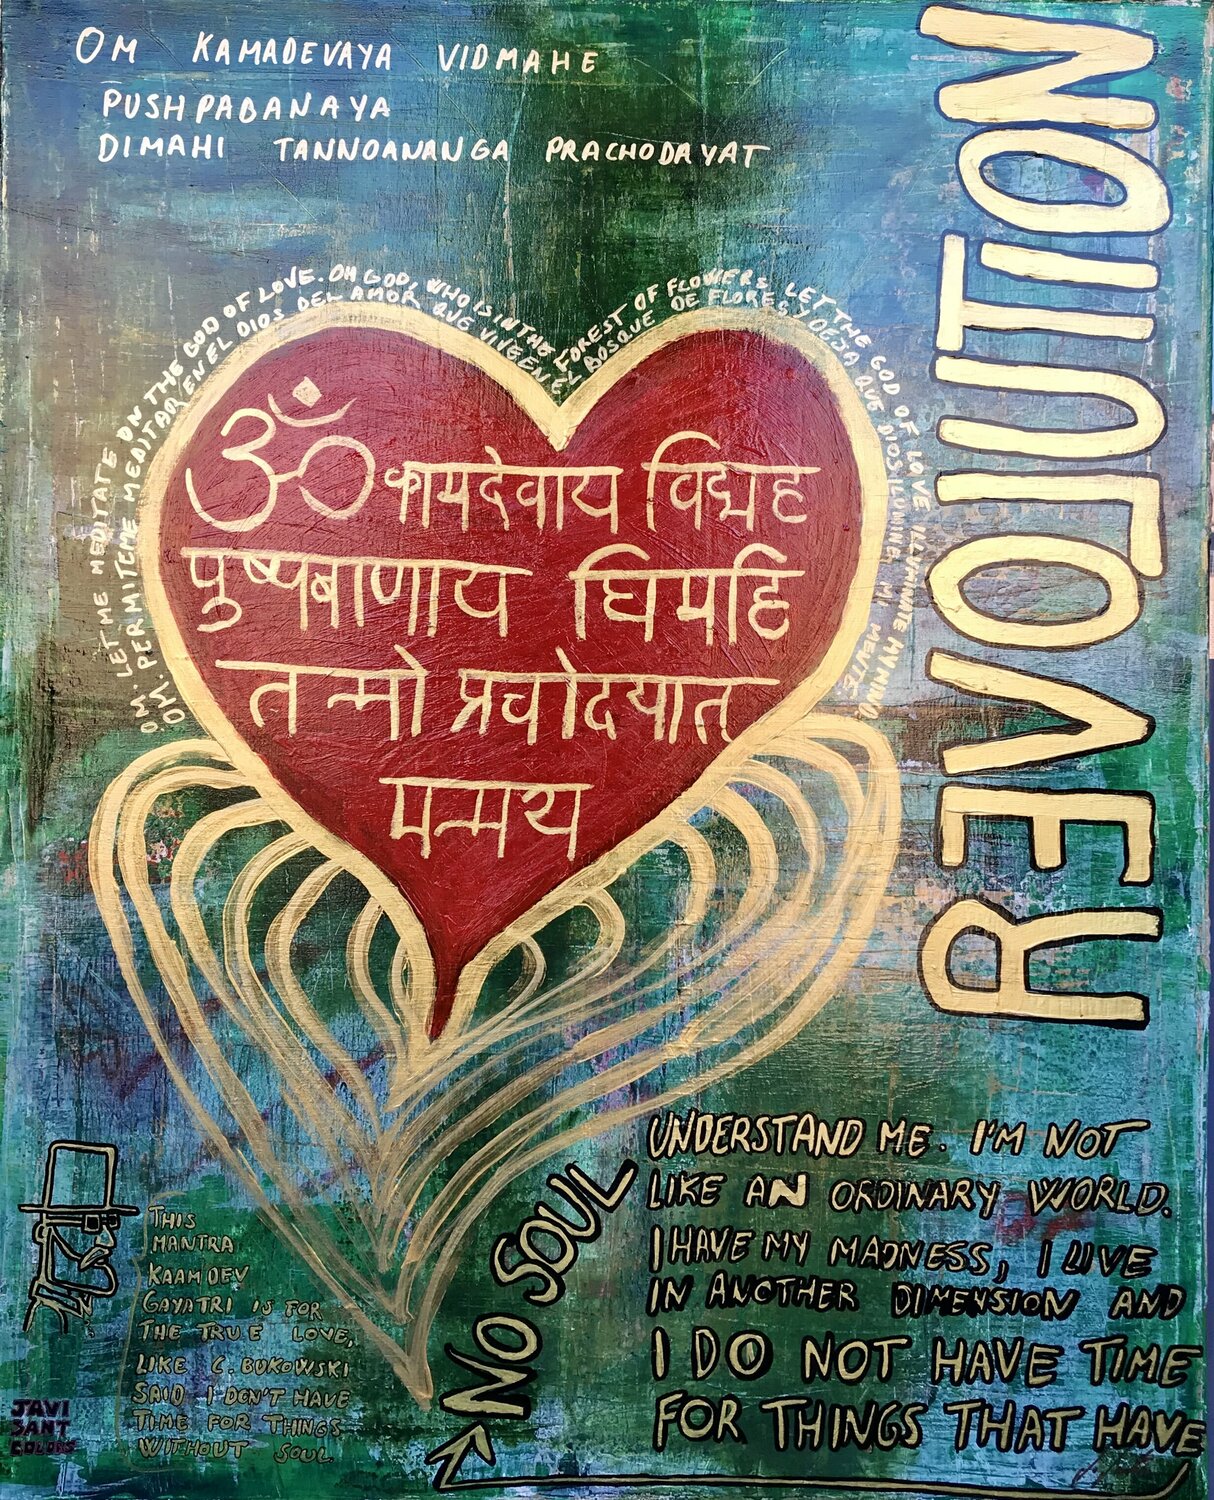 OM KAMADEVAYA VIDMAHE
PUSHPABANAYA
DIMAHI TANNOANANGA PRACHODAYAT
OM. LET ME MEDITATE ON THE GOD OF LOVE. OH GOD, WHO IS IN THE FOREST OF FLOWERS, LET THE GOD OF LOVE ILLUMINATE MY MIND.
OM. PERMITEME MEDITAR EN EL DIOS DEL AMOR QUE VIVE EN EL BOSQUE DE FLORES Y DEJA QUE DIOS ILUMINE MI MENTE
ॐ कामदेवाय विद्महे
पुष्पबाणाय घिमहि
तन्मो प्रचोदयात
मन्मय
REVOLUTION
UNDERSTAND ME. I'M NOT
LIKE AN ORDINARY WORLD.
I HAVE MY MADNESS, I LIVE
IN ANOTHER DIMENSION AND
I DO NOT HAVE TIME
FOR THINGS THAT HAVE
NO SOUL
THIS
MANTRA
KAAMDEV
GAYATRI IS FOR
THE TRUE LOVE,
LIKE C. BUKOWSKI
SAID I DON'T HAVE
TIME FOR THINGS
WITHOUT SOUL
JAVI
SANT
COLORS